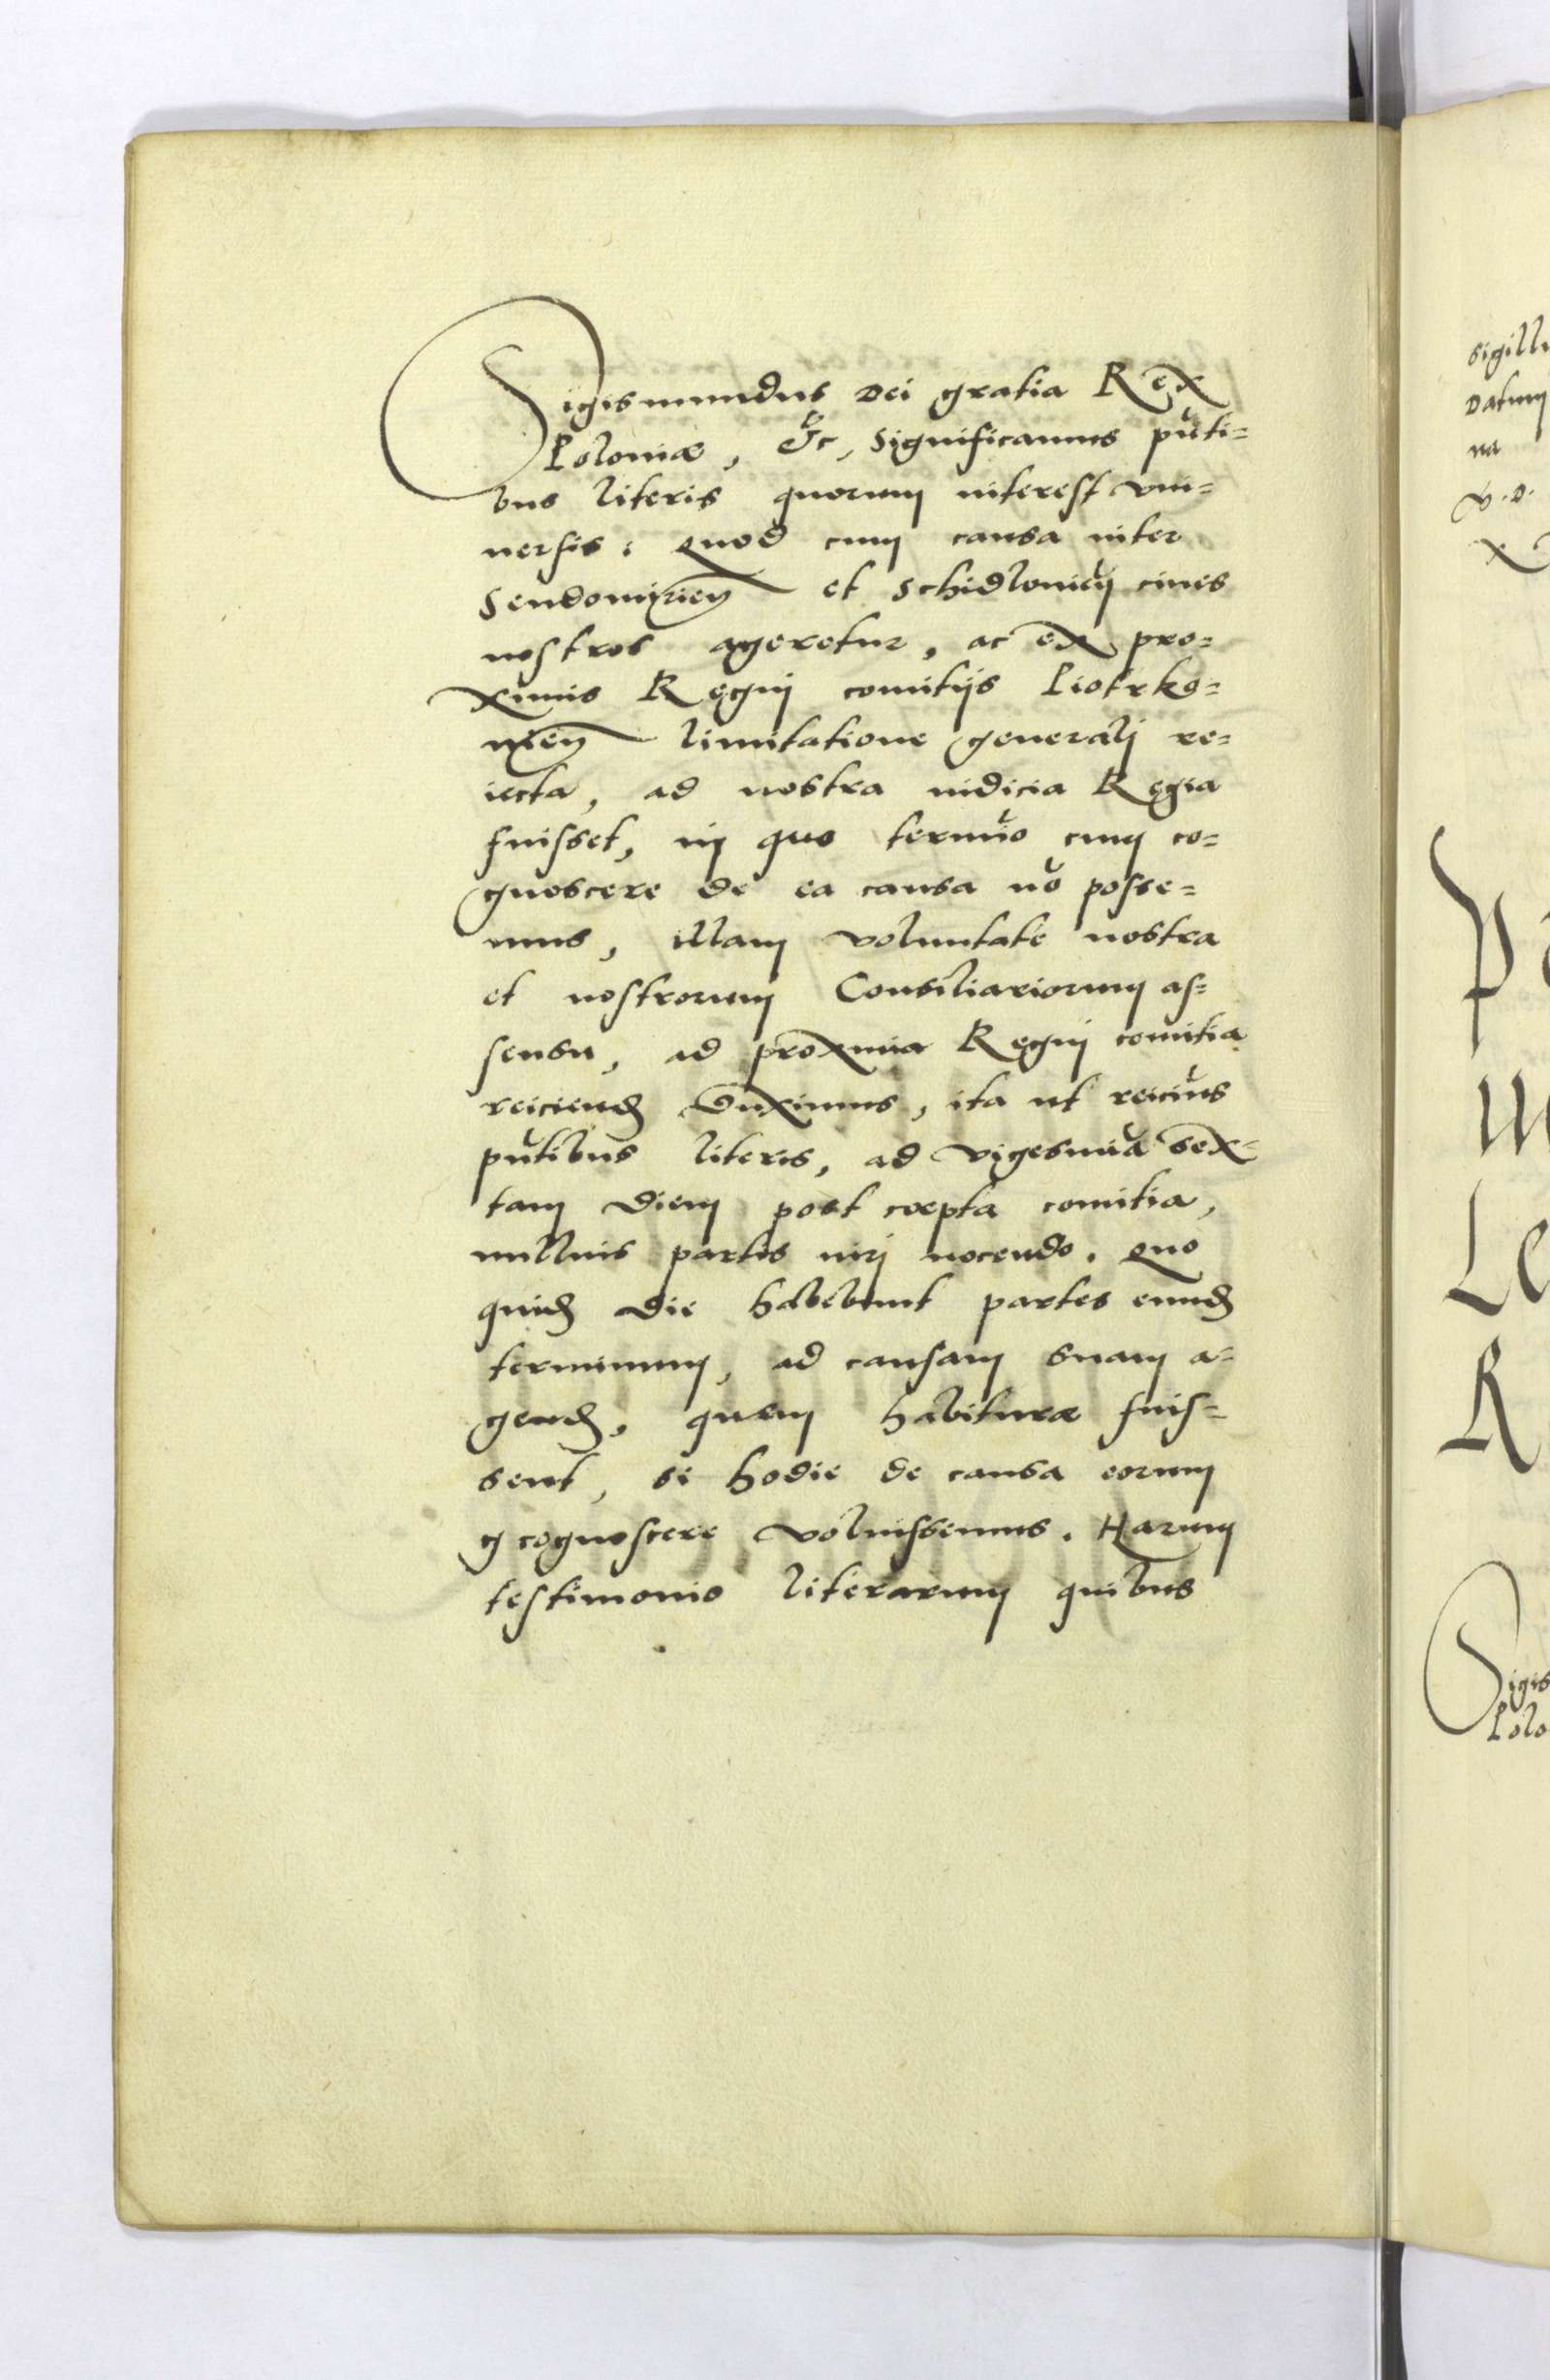 Sigismundus Dei gratia Rex
Poloniæ, &c, Significamus pn̄ti=
bus literis quorum interest vni=
uersis: Quod cum causa inter
Sendomirien̄ et Schidlouien̄ ciues
nostros ageretur, ac ex pro=
ximis Regni comitijs Piotrko=
uien̄ limitatione generali re=
iecta, ad nostra iudicia Regia
fuisset, in quo termīo cum co=
gnoscere de ea causa nō posse=
mus, illam voluntate nostra
et nostrorum Consiliariorum as=
sensu, ad proxima Regni comitia
reiciend̄ duximus, ita ut reicim̄us
pn̄tibus literis, ad vigesimā sex=
tam diem post cœpta comitia,
nullius partis iuri nocendo. Quo
quid̄ die habebunt partes eund̄
terminum, ad causam suam a=
gend̄, quem habituræ fuis=
sent, si hodie de causa eorum
cognoscere voluissemus. Harum
testimonio literarum quibus
sigillu
Datum
na
V. D.
X
Pa
Le
R
Sigis
Polo